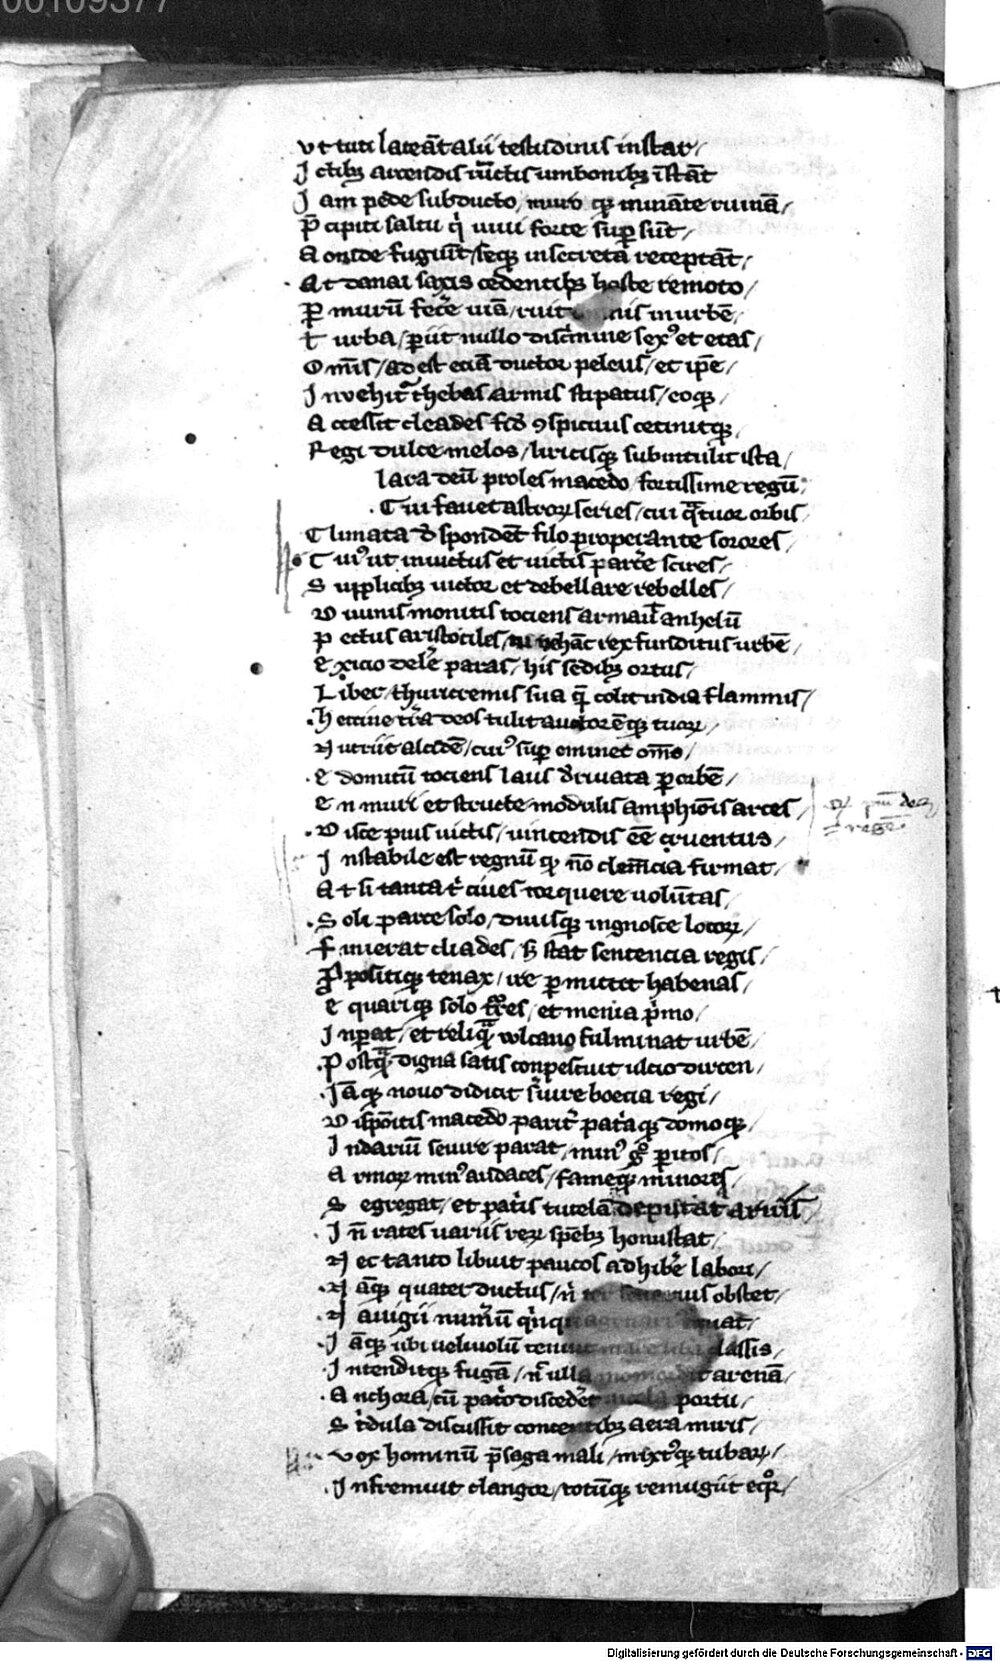 00109377
vt tuti lateāt alii testudinis instar/
Ictibꝫ arcendis iūctis umbonibꝫ īstāt
Iam pede subducto/ muro qꝫ mināte ruinā/
P̄cipiti saltu qͥ uiui forte suꝑ sūt/
Aonide fugiūt/ seqꝫ in secreta receptāt/
At danai saxis cedentibꝫ hoste remoto/
Ꝑ murū fec̄e uiā/ ruit nis in urbē/
 urba/ ꝑiit nullo discͥmine sexꝰ et etas/
Om̄is/ adest eciā ductor peleus/ et ip̄e/
Inuehit᷑ thebas armis stipatus/ eoqꝫ
Accessit cleades ꝯspicuus cecinitqꝫ
Regi dulce melos/ liricisqꝫ subintulit ista/
lara deū proles macedo/ fortissime regū
Cui fauet astroꝝ series/ cui qͣtuor orbis
Climata spondēt filo properante sorores/
Cuiꝰ ut inuictus et uictis parc̄e scires/
Supplicibꝫ uictor et debellare rebelles/
Diuinis monitis tociens armauit anhelū
pectus aristotiles/ tu ne hāc rex funditus urbē/
Exicio del̄e paras/ his sedibꝫ ortus/
Liber/ thuricremis sua qͣ colit india flammis/
Heccine tr̄a deos tulit auctorēqꝫ tuoꝝ/
Nutriit alcidē/ cuiꝰ suꝑ eminet om̄e/
Edomitū tociens laus deriuata ꝑ orbē/
En muri et structe modulis amphiōis arces/
Disce pius uictis/ uincendis eē cruentus/
Instabile est regnū qꝫ nō clem̄cia firmat/
At si tanta tͥ ciues torquere uolūtas/
Soli parce solo/ diuisqꝫ ingnosce locoꝝ/
Finierat cliades/ sꝫ stat sentencia regis/
Ꝓpositiqꝫ tenax/ ire ꝑmittit habenas/
Equariqꝫ solo tr̄res/ et menia pͥmo/
Inꝑat/ et reliqͣ volcano fulminat urbē/
Postqͣ digna satis conpescuit ulcio dircen/
Iāqꝫ nouo didicit s̄uire boecia regi/
Dispōitis macedo parit᷑ pat̄aqꝫ domoqꝫ
In dariū seuire parat/ minꝰ gͦ ꝑitos/
Armoꝝ minꝰ audaces/ fameqꝫ minores/
Segregat/ et patͥis tutelā deputat aruis/
In̄ rates uariis reꝝ spēbꝫ honustat/
Nec tanto libuit paucos adhib̄e labori/
Nāqꝫ quater ductus/ nͥ ter senarius obstet/
Nauigii num̄ū qͥnquagenari equat/
Iāqꝫ ubi ueliuolū tenuit mare classis/
Intenditqꝫ fugā/ n̄ ulla momordit arenā/
Anchora/ cū patͥo disced̄et portu/
Stͥdula discussit concentibꝫ aera miris/
Vox hominū p̄saga mali/ mixtꝰqꝫ tubaꝝ/
Infremuit clangor/ totūqꝫ remugiit eqͦr/
Digitalisierung gefördert durch die Deutsche Forschungsgemeinschaft - DFG